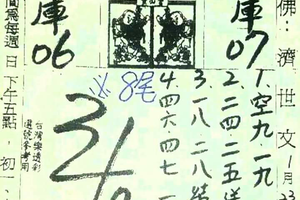 佛:濟世文
1月23
庫
07
庫
06
1空九·一九
2、二四二五送
3、一八·二八
4、四六·四七
必8尾
34
台灣樂透彩
選號參考用
間為每週日下午五點·初一